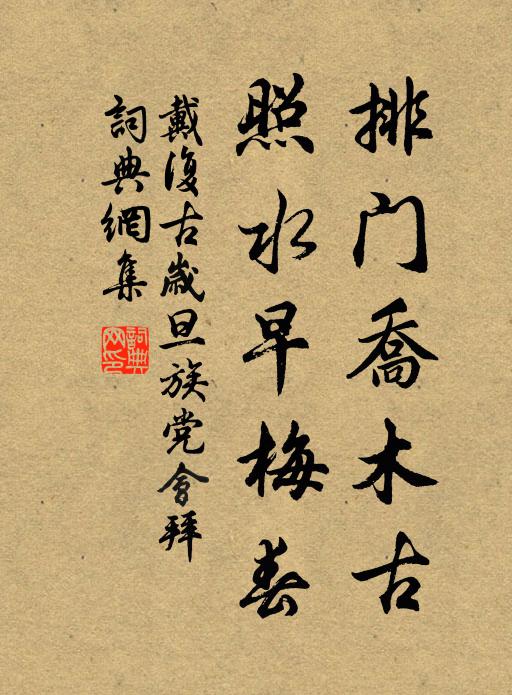 排门喬木古
照水早梅春
戴復古歲旦族党會拜
詞典網集
詞典网印